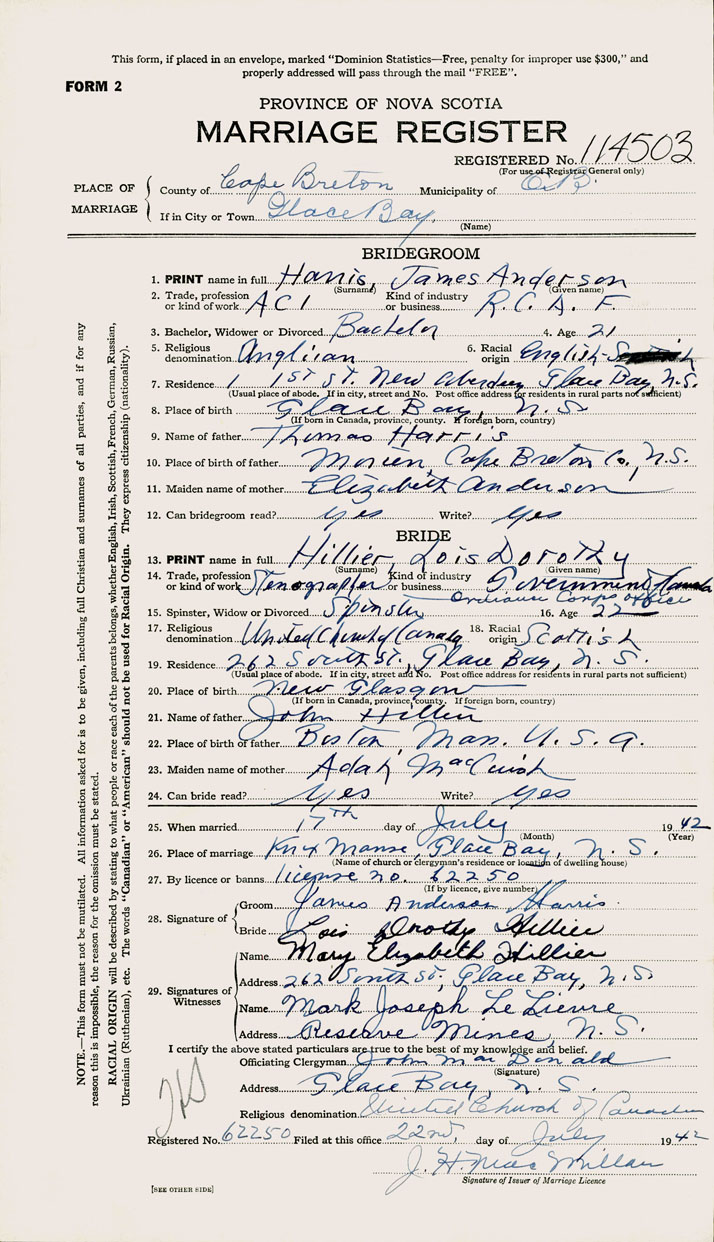 This form, if placed in an envelope, marked "Dominion Statistics—Free, penalty for improper use $300," and
properly addressed will pass through the mail "FREE".
FORM 2
PROVINCE OF NOVA SCOTIA
MARRIAGE REGISTER
REGISTERED No. 114503
(For use of Registrar General only)
PLACE OF MARRIAGE
County of Cape Breton Municipality of C.B.
If in City or Town Glace Bay,
(Name)
BRIDEGROOM
1. PRINT name in full Harris, James Anderson
(Surname) (Given name)
2. Trade, profession or kind of work A C 1 Kind of industry or business R. C. A. F.
3. Bachelor, Widower or Divorced Bachelor 4. Age 21
5. Religious denomination Anglican 6. Racial origin English
7. Residence 1 1st St. New Aberdeen Glace Bay, N.S.
(Usual place of abode. If in city, street and No. Post office address for residents in rural parts not sufficient)
8. Place of birth Glace Bay, N. S.
(If born in Canada, province, county. If foreign born, country)
9. Name of father Thomas Harris
10. Place of birth of father Morien, Cape Breton Co., N.S.
11. Maiden name of mother Elizabeth Anderson
12. Can bridegroom read? yes Write? yes
BRIDE
13. PRINT name in full Hillier Lois Dorothy
(Surname) (Given name)
14. Trade, profession or kind of work Stenographer Kind of industry or business Government of Canada
Ordnance Corps office
15. Spinster, Widow or Divorced Spinster 16. Age 22
17. Religious denomination United Church of Canada 18. Racial origin Scottish
19. Residence 262 South St., Glace Bay, N. S.
(Usual place of abode. If in city, street and No. Post office address for residents in rural parts not sufficient)
20. Place of birth New Glasgow
(If born in Canada, province, county. If foreign born, country)
21. Name of father John Hillier
22. Place of birth of father Boston, Mass. U. S. A.
23. Maiden name of mother Adah MacCuish
24. Can bride read? yes Write? yes
25. When married 17th day of July 1942
(Month) (Year)
26. Place of marriage Knox Manse, Glace Bay, N. S.
(Name of church or clergyman's residence or location of dwelling house)
27. By licence or banns license no. 62250
(If by licence, give number)
28. Signature of
Groom James Anderson Harris
Bride Lois Dorothy Hillier
29. Signatures of Witnesses
Name Mary Elizabeth Hillier
Address 262 South St., Glace Bay, N. S.
Name Mark Joseph Le Lievre
Address Reserve Mines, N. S.
I certify the above stated particulars are true to the best of my knowledge and belief.
Officiating Clergyman John MacDonald
(Signature)
Address Glace Bay, N. S.
Religious denomination United Church of Canada
Registered No. 62250 Filed at this office 22nd, day of July 1942
J. H. MacMillan
Signature of Issuer of Marriage Licence
[SEE OTHER SIDE]
NOTE.—This form must not be mutilated. All information asked for is to be given, including full Christian and surnames of all parties, and if for any
reason this is impossible, the reason for the omission must be stated.
RACIAL ORIGIN will be described by stating to what people or race each of the parents belongs, whether English, Irish, Scottish, French, German, Russian,
Ukrainian (Ruthenian), etc. The words "Canadian" or "American" should not be used for Racial Origin. They express citizenship (nationality).